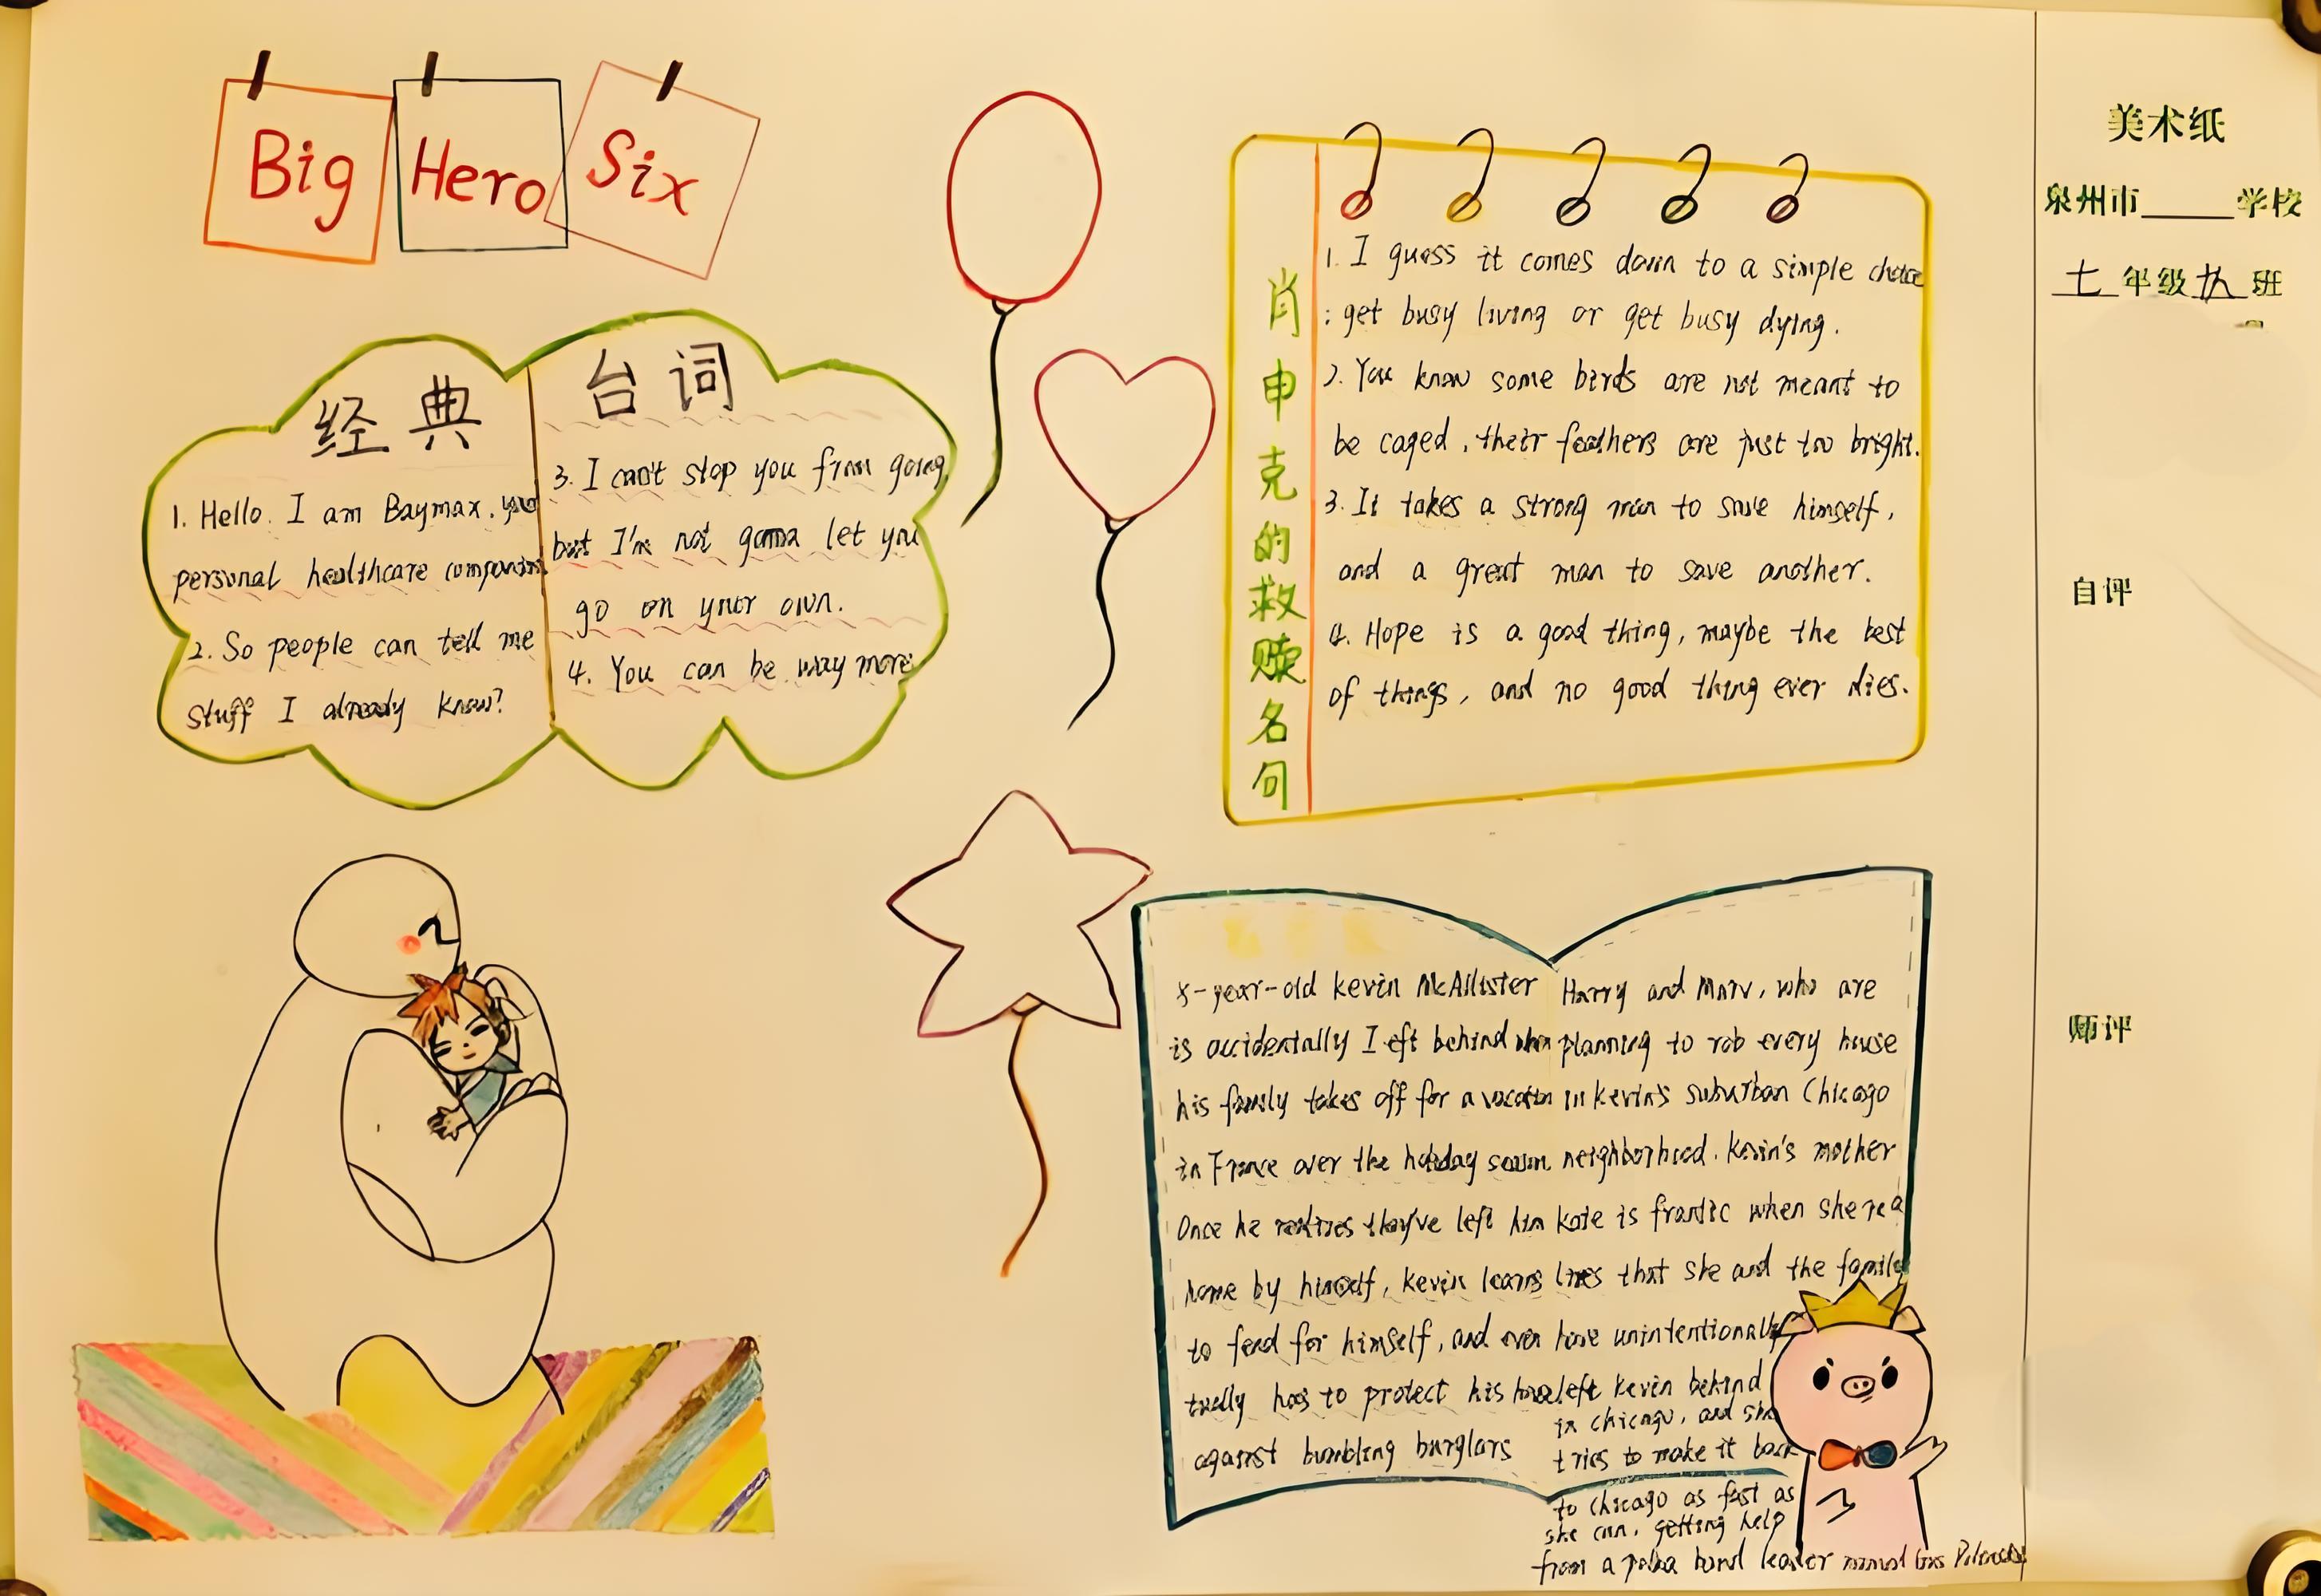 Big Hero Six
经典台词
1. Hello. I am Baymax. your
personal healthcare companion
2. So people can tell me
stuff I already know?
3. I can't stop you from going
but I'm not gonna let you
go on your own.
4. You can be way more
肖申克的救赎名句
1. I guess it comes down to a simple choice
: get busy living or get busy dying.
2. You know some birds are not meant to
be caged, their feathers are just too bright.
3. It takes a strong man to save himself,
and a great man to save another.
4. Hope is a good thing, maybe the best
of things, and no good thing ever dies.
8-year-old Kevin McAllister
is accidentally left behind when
his family takes off for a vacation
in France over the holiday season.
Once he realizes they've left him
home by himself, Kevin learns
to fend for himself, and even
tually has to protect his house
against bumbling burglars
Harry and Marv, who are
planning to rob every house
in Kevin's suburban Chicago
neighborhood. Kevin's mother
Kate is frantic when she rea
lizes that she and the family
have unintentionally
left Kevin behind
in chicago, and she
tries to make it back
to chicago as fast as
she can, getting help
from a polka band leader named Gus
美术纸
泉州市 学校
七年级 班
自评
师评